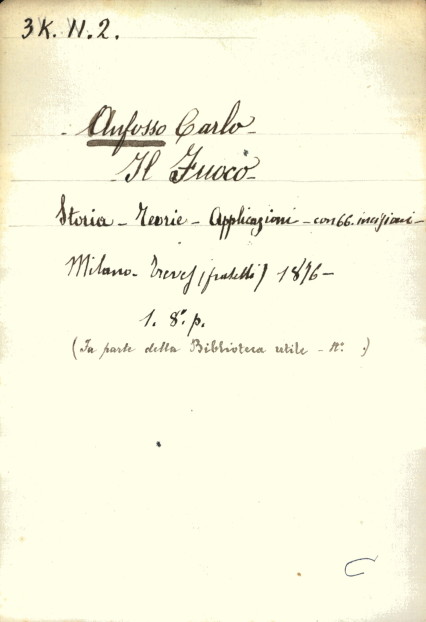 3K. N. 2.
- Anfosso Carlo -
- Il Fuoco -
Storia - Teorie - Applicazioni - con 66. incisioni -
Milano - Treves (fratelli) 1876 -
1. 8.º p.
(Fa parte della Biblioteca utile - Nº .)
C